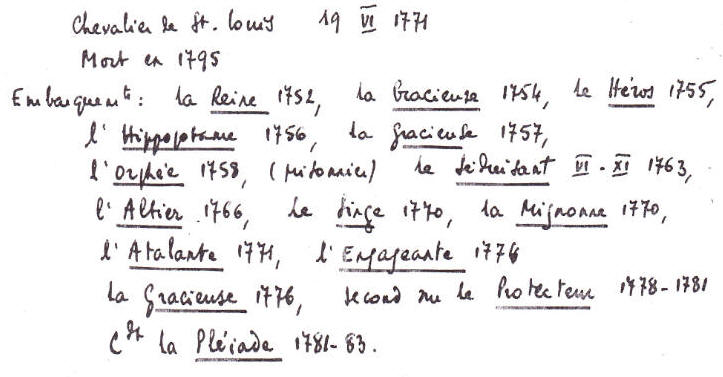 Chevalier de St. Louis 19 VI 1771
Mort en 1795
Embarquemts : la Reine 1752, la Gracieuse 1754, le Héros 1755,
l'Hippopotame 1756, la Gracieuse 1757,
l'Orphée 1758, (prisonnier) le Séduisant VI - XI 1763,
l'Altier 1766, le Singe 1770, la Mignonne 1770,
l'Atalante 1771, l'Engageante 1776
la Gracieuse 1776, second sur le Protecteur 1778-1781
Cdt la Pléiade 1781-83.